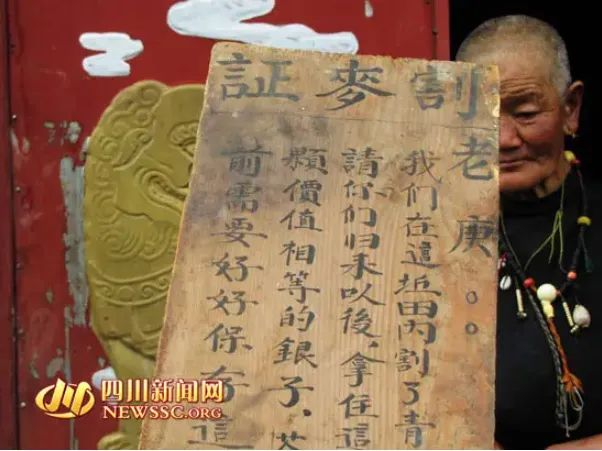 割麥証
老庚:
我们在這坵田內割了青
請你们归来以後,拿住這
顆價值相等的銀子、
前需要好好保存這
四川新闻网
NEWSSC.ORG